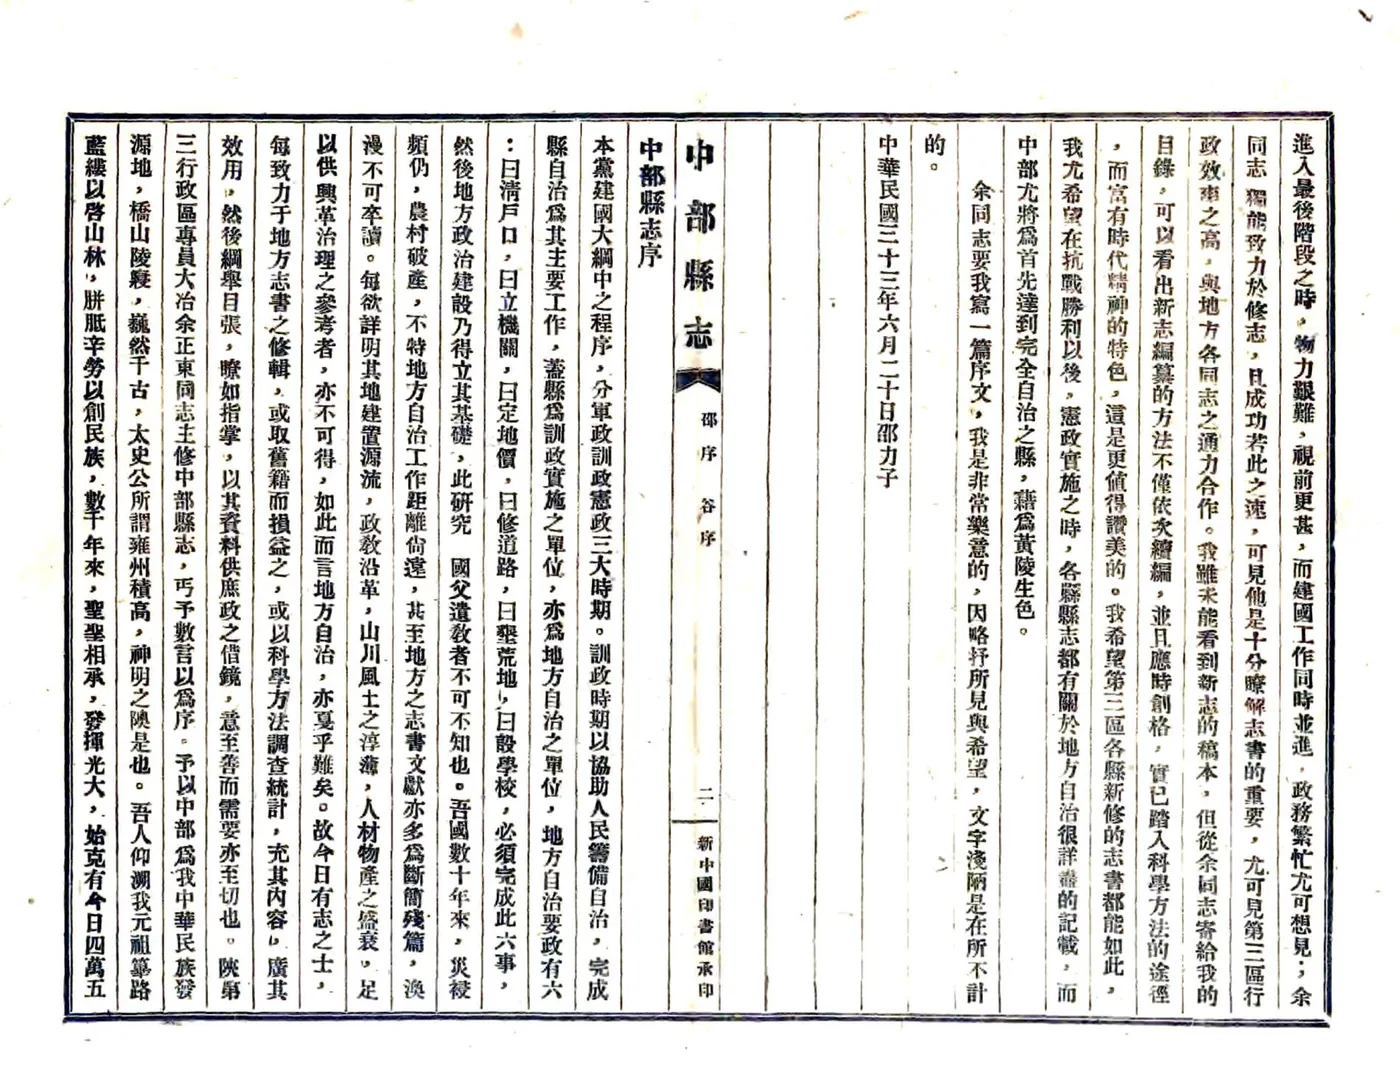 進入最後階段之時，物力艱難，視前更甚，而建國工作同時並進，政務繁忙尤可想見；余
同志 獨能致力於修志，且成功若此之速，可見他是十分瞭解志書的重要，尤可見第三區行
政效率之高，與地方各同志之通力合作。我雖未能看到新志的稿本，但從余同志寄給我的
目錄，可以看出新志編纂的方法不僅依次續編，並且應時創格，實已踏入科學方法的途徑
，而富有時代精神的特色，這是更値得讚美的。我希望第三區各縣新修的志書都能如此，
我尤希望在抗戰勝利以後，憲政實施之時，各縣縣志都有關於地方自治很詳盡的記載，而
中部尤將爲首先達到完全自治之縣，藉爲黃陵生色。
余同志要我寫一篇序文，我是非常樂意的，因略抒所見與希望，文字淺陋是在所不計
的。
中華民國三十三年六月二十日邵力子
中部縣志
邵序 谷序
二
新中國印書館承印
中部縣志序
本黨建國大綱中之程序，分軍政訓政憲政三大時期。訓政時期以協助人民籌備自治，完成
縣自治爲其主要工作，蓋縣爲訓政實施之單位，亦爲地方自治之單位，地方自治要政有六
：曰淸戶口，曰立機關，曰定地價，曰修道路，曰墾荒地，曰設學校，必須完成此六事，
然後地方政治建設乃得立其基礎，此研究 國父遺敎者不可不知也。吾國數十年來，災祲
頻仍，農村破產，不特地方自治工作距離尙遠，甚至地方之志書文獻亦多爲斷簡殘篇，渙
漫不可卒讀。每欲詳明其地建置源流，政敎沿革，山川風土之淳薄，人材物產之盛衰，足
以供興革治理之參考者，亦不可得，如此而言地方自治，亦戛乎難矣。故今日有志之士，
每致力于地方志書之修輯，或取舊籍而損益之，或以科學方法調查統計，充其內容，廣其
效用，然後綱舉目張，瞭如指掌，以其資料供庶政之借鏡，意至善而需要亦至切也。陝第
三行政區專員大冶余正東同志主修中部縣志，丐予數言以爲序。予以中部爲我中華民族發
源地，橋山陵寢，巍然千古，太史公所謂雍州積高，神明之隩是也。吾人仰溯我元祖篳路
藍縷以啓山林，胼胝辛勞以創民族，數千年來，聖聖相承，發揮光大，始克有今日四萬五